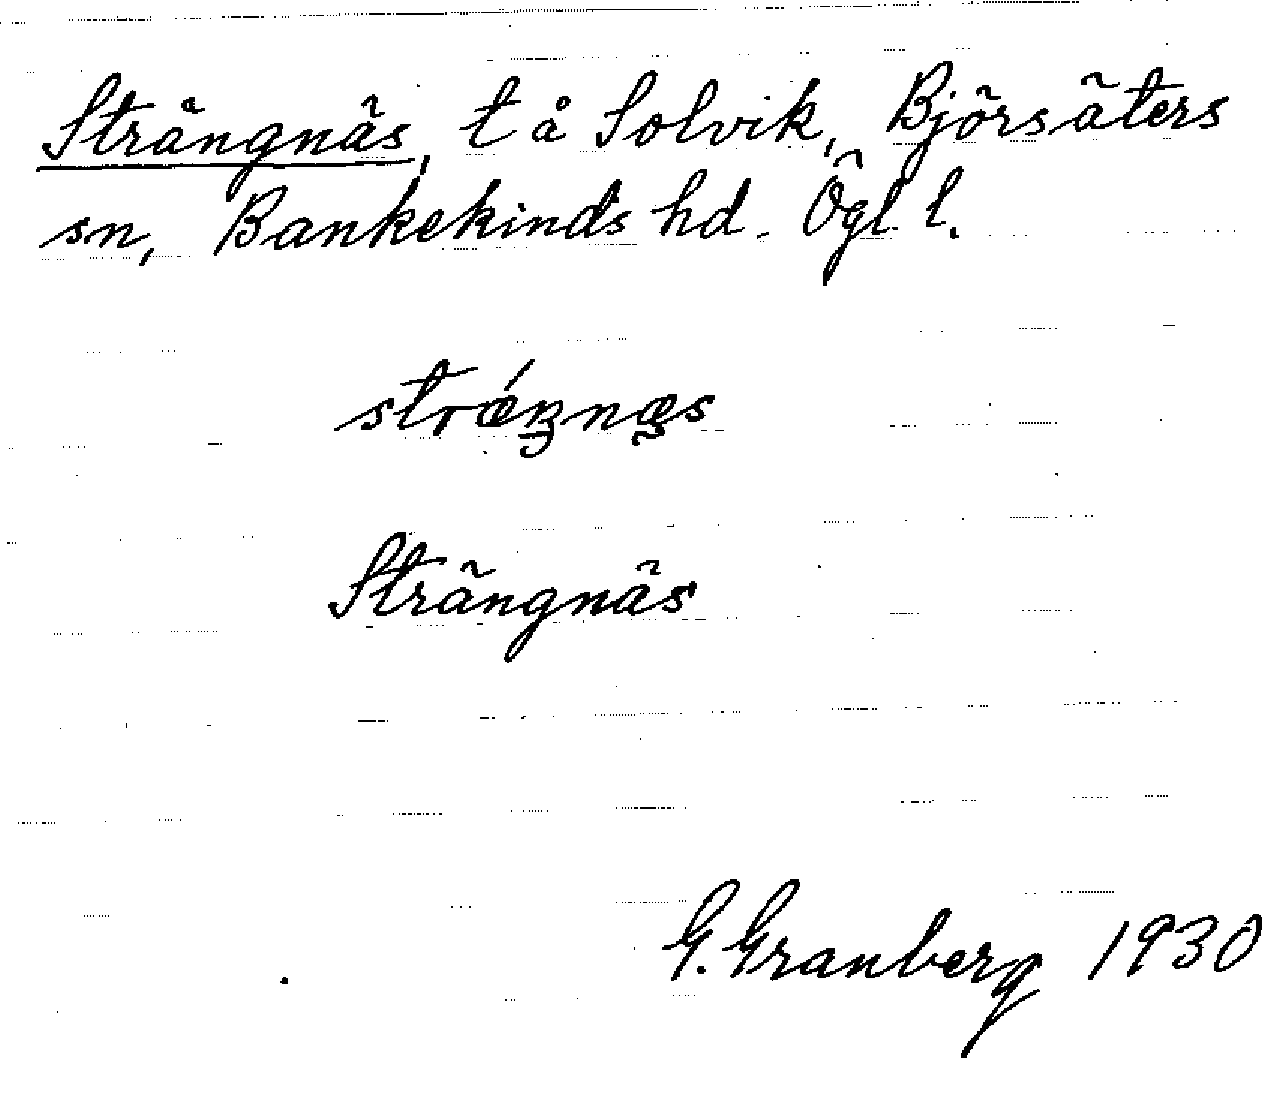 Strängnäs, t å Solvik, Björsäters
sn, Bankekinds hd. Ögl l.
strǽŋnæ̰s
Strängnäs
G. Granberg 1930